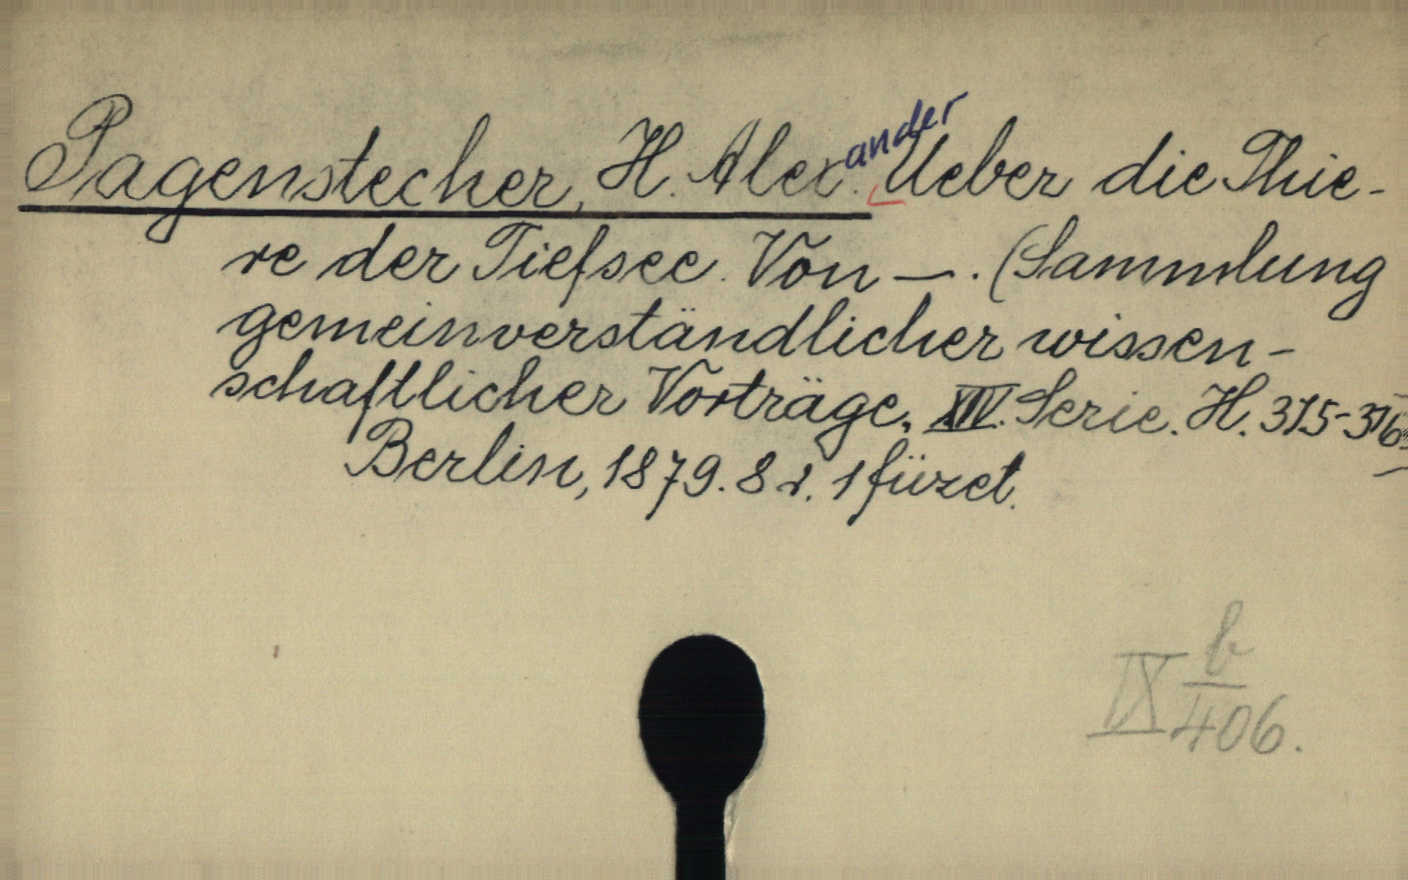 Pagenstecher, H. Alexander. Ueber die Thie-
re der Tiefsee. Von —. (Sammlung
gemeinverständlicher wissen-
schaftlicher Vorträge. XIV. Serie. H. 315-316
Berlin, 1879. 8 r. 1 füzet.
IX b
406.